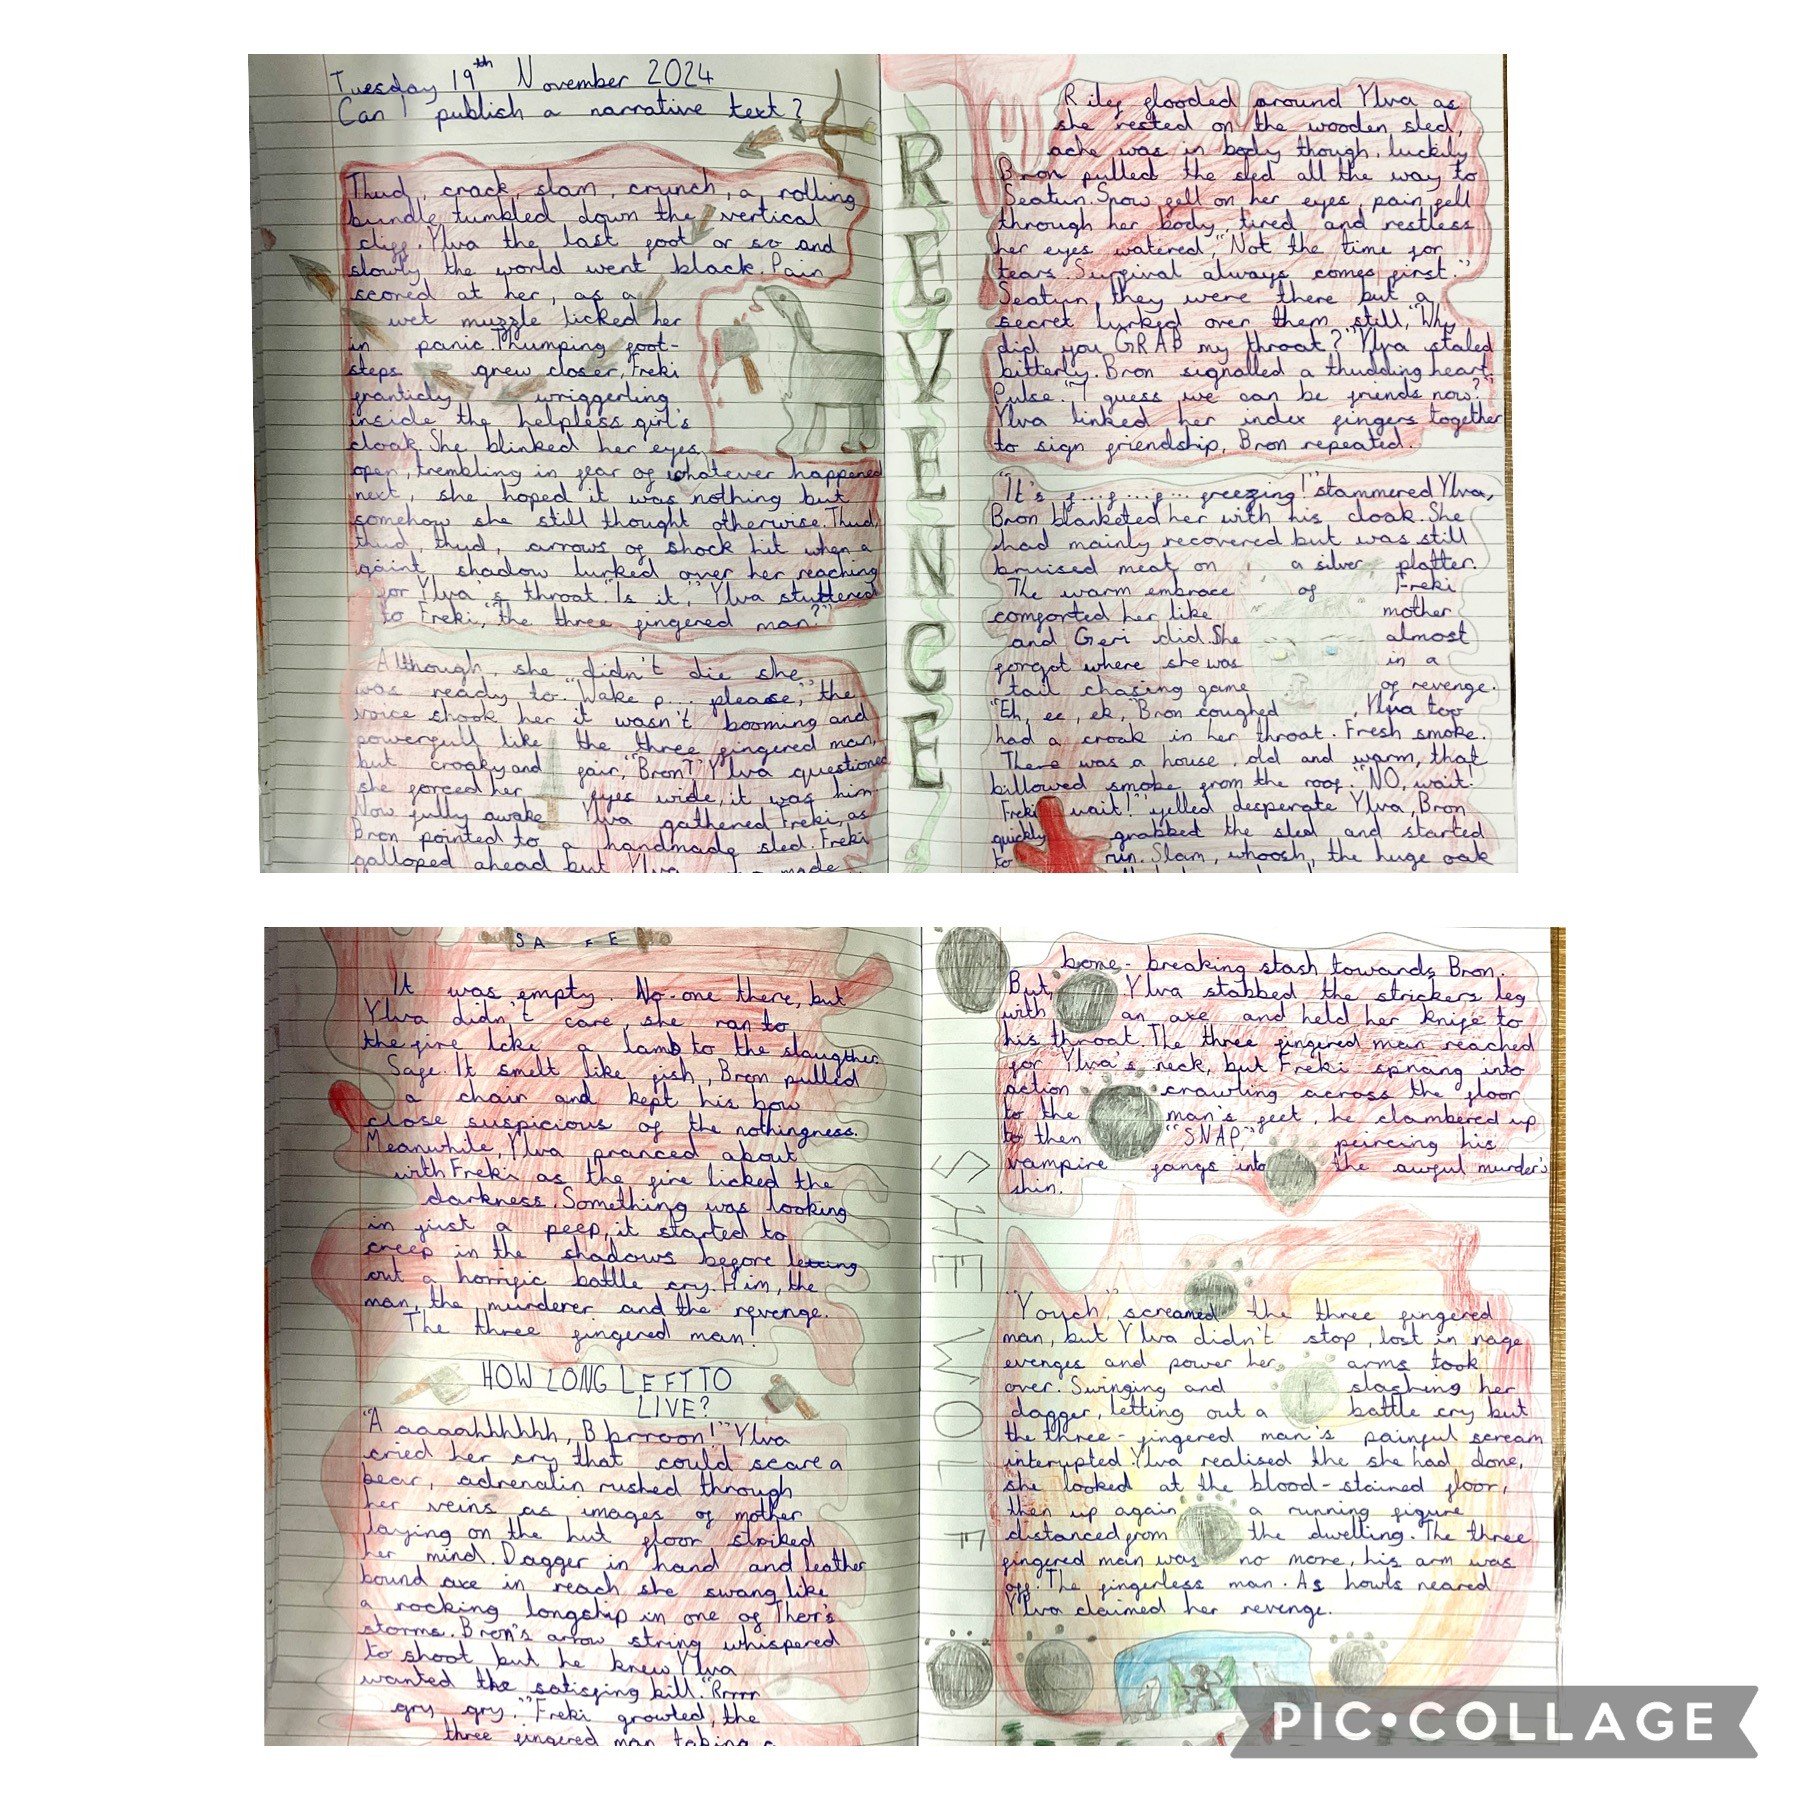 Tuesday 19th November 2024
Can I publish a narrative text?
Thud, crack, slam, crunch, a rolling
bundle tumbled down the vertical
cliff. Ylva the last foot or so and
slowly the world went black. Pain
scored at her, as a
wet muzzle licked her
in panic. Thumping foot-
steps grew closer, Freki
franticly wriggerling
inside the helpless girl's
cloak. She blinked her eyes
open, trembling in fear of whatever happened
next, she hoped it was nothing but
somehow she still thought otherwise. Thud,
thud, thud, arrows of shock hit when a
gaint shadow lurked over her reaching
for Ylva's throat. "Is it," Ylva stuttered
to Freki, "the three fingered man?"
Although, she didn't die she
was ready to. "Wake p... please," the
voice shook her it wasn't booming and
powerfull like the three fingered man,
but croaky and fair, "Bron?" Ylva questioned
she forced her eyes wide, it was him
Now fully awake Ylva gathered Freki, as
Bron pointed to a handmade sled. Freki
galloped ahead but Ylva made
REVENGE
Riley flooded around Ylva as
she rested on the wooden sled,
ache was in body though, luckily
Bron pulled the sled all the way to
Seatun. Snow fell on her eyes, pain fell
through her body, tired and restless
her eyes watered, "Not the time for
tears. Survival always comes first."
Seatun, they were there but a
secret lurked over them still, "Why
did you GRAB my throat?" Ylva staled
bitterly. Bron signalled a thudding heart.
Pulse. "I guess we can be friends now?"
Ylva linked her index fingers together
to sign friendship, Bron repeated.
"It's f...f...f... freezing!" stammered Ylva,
Bron blanketed her with his cloak. She
had mainly recovered but was still
bruised meat on a silver platter.
The warm embrace of Freki
comforted her like mother
and Geri did. She almost
forgot where she was in a
tail chasing game of revenge.
"Eh, ee, ek," Bron coughed, Ylva too
had a croak in her throat. Fresh smoke.
There was a house, old and warm, that
billowed smoke from the roof. "NO, wait!
Freki wait!" yelled desperate Ylva, Bron
quickly grabbed the sled and started
to run. Slam, whoosh, the huge oak
SA FE
It was empty. No-one there, but
Ylva didn't care, she ran to
the fire like a lamb to the slaughter.
Safe. It smelt like fish, Bron pulled
a chair and kept his bow
close suspicious of the nothingness.
Meanwhile, Ylva pranced about
with Freki as the fire licked the
darkness. Something was looking
in just a peep, it started to
creep in the shadows before letting
out a horrific battle cry. Him, the
man, the murderer and the revenge.
The three fingered man!
HOW LONG LEFT TO
LIVE?
"A aaaahhhhhh, B brrroon!" Ylva
cried her cry that could scare a
bear, adrenalin rushed through
her veins as images of mother
laying on the hut floor striked
her mind. Dagger in hand and leather
bound axe in reach she swang like
a rocking longship in one of Thor's
storms. Bron's arrow string whispered
to shoot but he knew Ylva
wanted the satisfing kill. "Rrrrr
gry gry," Freki growled, the
three fingered man taking a
bone-breaking stash towards Bron.
But, Ylva stabbed the strickers leg
with an axe and held her knife to
his throat. The three fingered man reached
for Ylva's neck, but Freki sprang into
action crawling across the floor
to the man's feet, he clambered up
to then "SNAP," peircing his
vampire fangs into the awful murder's
shin.
"Youch", screamed the three fingered
man, but Ylva didn't stop, lost in rage
evenges and power her arms took
over. Swinging and slashing her
dagger, letting out a battle cry but
the three-fingered man's painful scream
interupted. Ylva realised the she had done,
she looked at the blood-stained floor,
then up again a running figure
distanced from the dwelling. The three
fingered man was no more, his arm was
off. The fingerless man. As howls neared
Ylva claimed her revenge.
PIC•COLLAGE